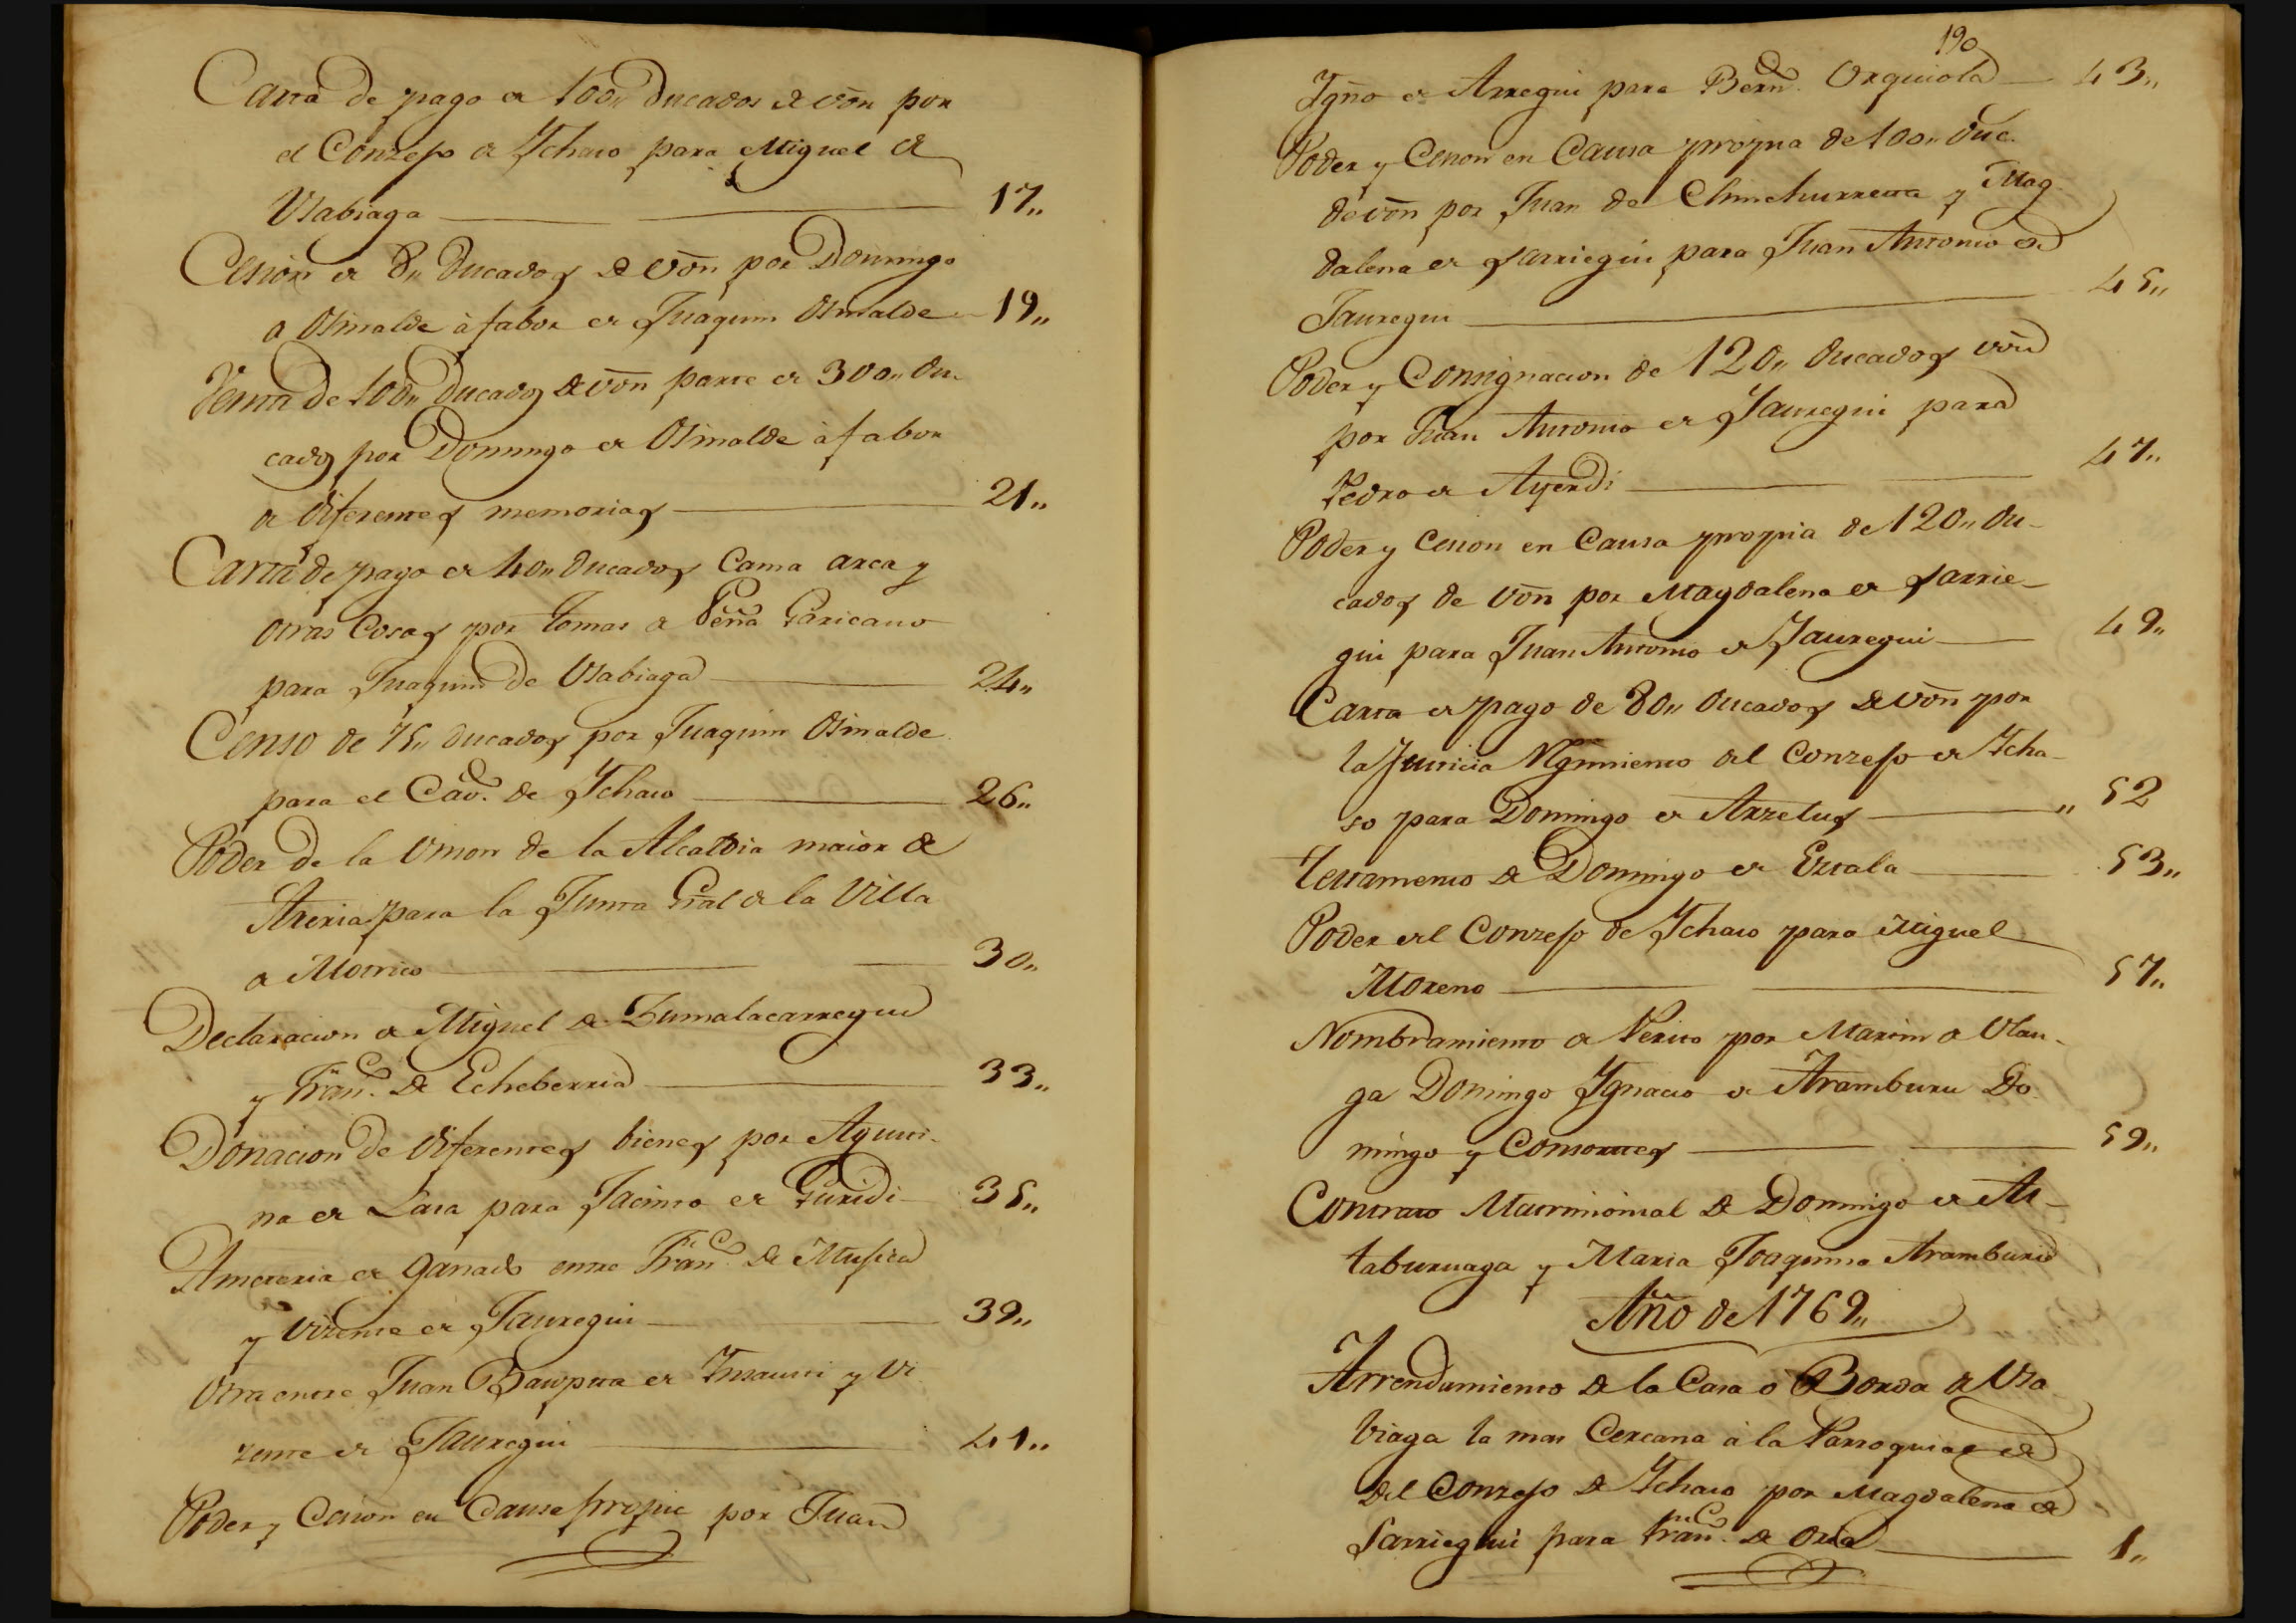 Carta de pago de 100,, Ducados de von por
el Conzejo de Ychaso para Miguel de
Usabiaga 17,,
Cesion de 8,, Ducados de von por Domingo
de Osinalde à fabor de Juaquin Osinalde 19,,
Venta de 100,, Ducados de von parte de 300,, du-
cados por Domingo de Osinalde à fabor
de diferentes memorias 21,,
Carta de pago de 40,, Ducados Cama arca y
otras Cosas por Tomas de Garicano
para Juaquin de Usabiaga 24,,
Censo de 75,, ducados por Juaquin Osinalde
para el Cav.º de Ychaso 26,,
Poder de la Union de la Alcaldia maior de
Areria para la Junta Gral de la Villa
de Motrico 30,,
Declaracion de Miguel de Zumalacarregui
y Fran.co de Echeberria 33,,
Donacion de diferentes bienes por Agusti-
na de Lasa para Jacinto de Guridi 35,,
Ameteria de ganado entre Fran.co de Mujica
y Vizente de Jauregui 39,,
Otra entre Juan Bauptta de Insausti y Vi
zente de Jauregui 41,,
Poder y Cesion en Causa propia por Juan
190
Ygño de Arregui para Bern.do Orquiola 43,,
Poder y Cesion en Causa propia de 100,, duc.
de von por Juan de Chinchurreta y Mag-
dalena de Sarriegui para Juan Antonio de
Jauregui 45,,
Poder y Consignacion de 120,, ducados von
por Juan Antonio de Jauregui para
Pedro de Ayerdi 47,,
Poder y Cesion en Causa propia de 120,, du-
cados de von por Magdalena de Sarrie-
gui para Juan Antonio de Jauregui 49,,
Carta de pago de 80,, ducados de von por
la Justicia Rgimiento del Conzejo de Ycha-
so para Domingo de Arzelus ,, 52
Testamento de Domingo de Ezcala 53,,
Poder del Conzejo de Ychaso para Miguel
Moreno 57,,
Nombramiento de Perito por Martin de Olau-
ga Domingo Ygnacio de Aramburu Do-
mingo y Consortes 59,,
Contrato Matrimonial de Domingo de Al-
taburuaga y Maria Joaquina Aramburu
Año de 1769,,
Arrendamiento de la Casa o Borda de Usa
biaga la mas Cercana à la Parroquial de
del Conzejo de Ychaso por Magdalena de
Sarriegui para Fran.co de Oria 1,,